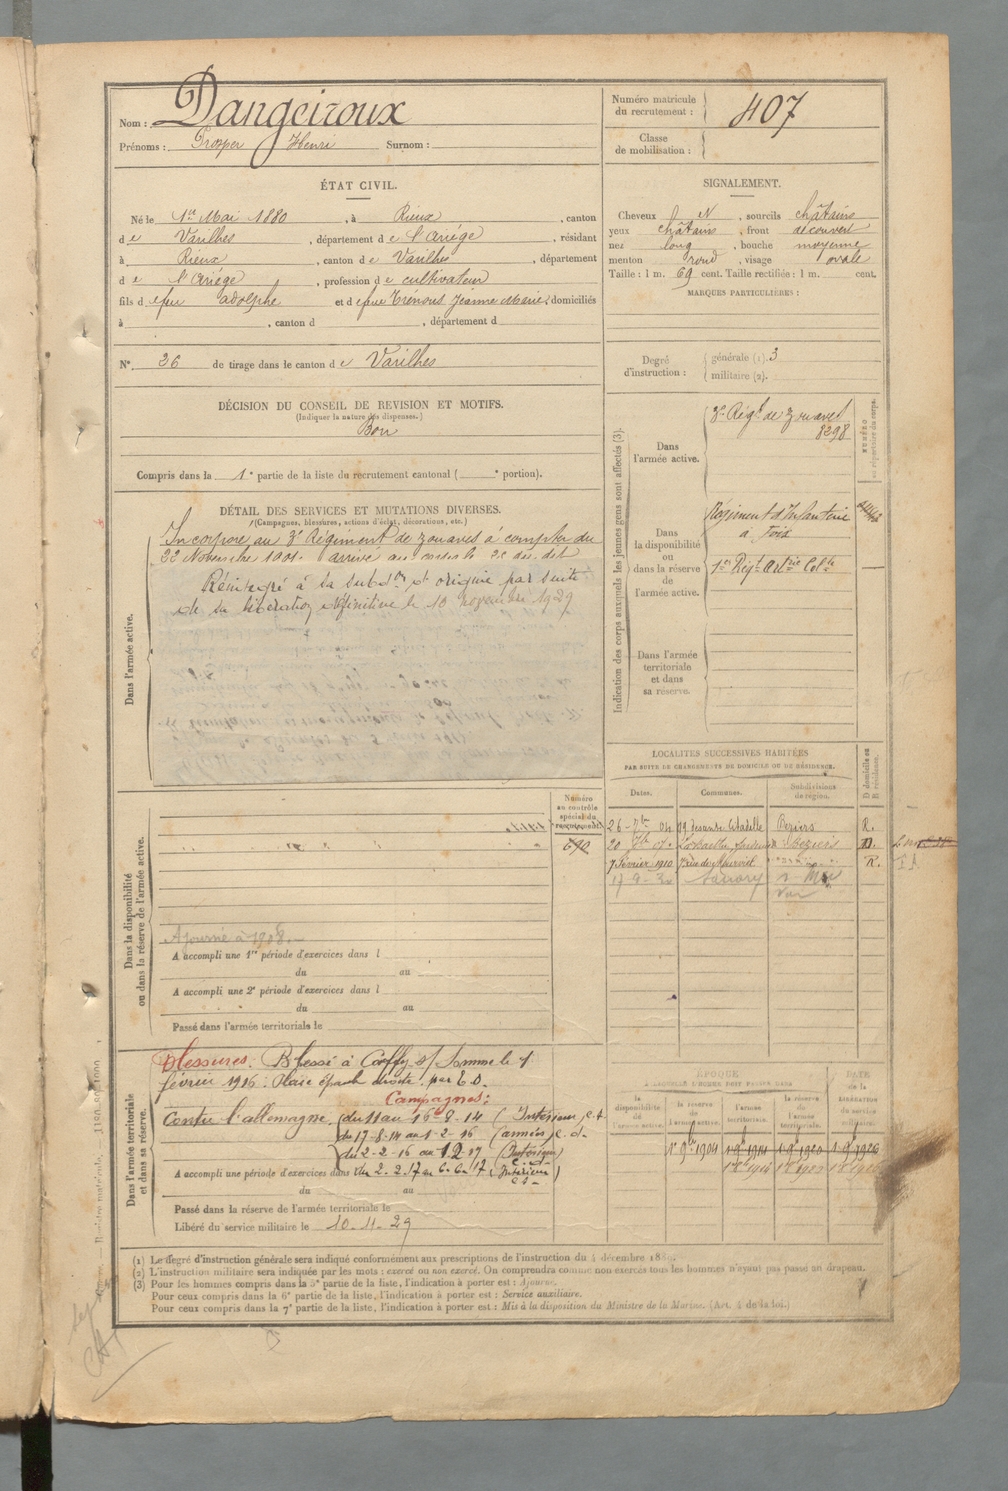 Nom : Dangeiroux
Prénoms : Prosper Henri Surnom :
Numéro matricule
du recrutement : 407
Classe
de mobilisation :
ÉTAT CIVIL.
Né le 1er Mai 1880, à Rieux, canton
de Varilhes, département de l'Ariége, résidant
à Rieux, canton de Varilhes, département
de l'Ariége, profession de cultivateur
fils de feu adolphe et de feue Jeanne Marie, domiciliés
à , canton d , département d
N° 26 de tirage dans le canton de Varilhes
SIGNALEMENT.
Cheveux N, sourcils châtains
yeux châtains, front découvert
nez long, bouche moyenne
menton rond, visage ovale
Taille : 1 m. 69 cent. Taille rectifiée : 1 m. cent.
MARQUES PARTICULIÈRES :
Degré
d'instruction :
générale (1). 3
militaire (2).
DÉCISION DU CONSEIL DE REVISION ET MOTIFS.
(Indiquer la nature des dispenses.)
Bon
Compris dans la 1e partie de la liste du recrutement cantonal ( e portion).
DÉTAIL DES SERVICES ET MUTATIONS DIVERSES.
(Campagnes, blessures, actions d'éclat, décorations, etc.)
Dans l'armée active.
Incorporé au 3e Régiment de zouaves à compter du
22 Novembre 1901. arrivé au corps le dit
Réintegré à sa subdon d'origine par suite
de sa libération définitive le 10 novembre 1929
Indication des corps auxquels les jeunes gens sont affectés (3).
NUMÉRO
au répertoire du corps.
Dans
l'armée active.
3e Régt de zouaves
8298
Dans
la disponibilité
ou
dans la réserve
de
l'armée active.
Régiment d'Infanterie
à Foix
1er Régt Artrie Colle
Dans l'armée
territoriale
et dans
sa réserve.
LOCALITÉS SUCCESSIVES HABITÉES
PAR SUITE DE CHANGEMENTS DE DOMICILE OU DE RÉSIDENCE.
Dates. Communes. Subdivisions
de région.
D domicile ou
R résidence.
26 - 04 19 Citadelle Beziers R.
20 Beziers D.
7 Février 1910 7 rue de R.
17-9-30
Var
Dans la disponibilité
ou dans la réserve de l'armée active.
Numéro
au contrôle
spécial du
recrutement.
690
Ajourné à 1908.
A accompli une 1re période d'exercices dans l
du au
A accompli une 2e période d'exercices dans l
du au
Passé dans l'armée territoriale le
Dans l'armée territoriale
et dans sa réserve.
Blessures. Blessé à s/ Somme le 1
février 1916 : Plaie épaule droite par E.O.
Campagnes :
Contre l'allemagne. (du 11 au 16-8-14 (Intérieur c.s.
du 17-8-14 au 1-2-16 (armées c.d.
du 2-2-16 au (Intérieur)
A accompli une période d'exercices dans du 2-2-17 au 6-6-17 (Intérieur
c.s.
du au
Passé dans la réserve de l'armée territoriale le
Libéré du service militaire le 10-11-29
ÉPOQUE
À LAQUELLE L'HOMME DOIT PASSER DANS
la
disponibilité
de
l'armée active.
la réserve
de
l'armée
active.
l'armée
territoriale.
la réserve
de
l'armée
territoriale.
DATE
de la
LIBÉRATION
du service
militaire.
1er 9bre 1904 1er 9bre 1914 1er 9bre 1920 1er 9bre 1926
(1) Le degré d'instruction générale sera indiqué conformément aux prescriptions de l'instruction du 4 décembre 1889.
(2) L'instruction militaire sera indiquée par les mots : exercé ou non exercé. On comprendra comme non exercés tous les hommes n'ayant pas passé au drapeau.
(3) Pour les hommes compris dans la 5e partie de la liste, l'indication à porter est : Ajourné.
Pour ceux compris dans la 6e partie de la liste, l'indication à porter est : Service auxiliaire.
Pour ceux compris dans la 7e partie de la liste, l'indication à porter est : Mis à la disposition du Ministre de la Marine. (Art. 4 de la loi.)